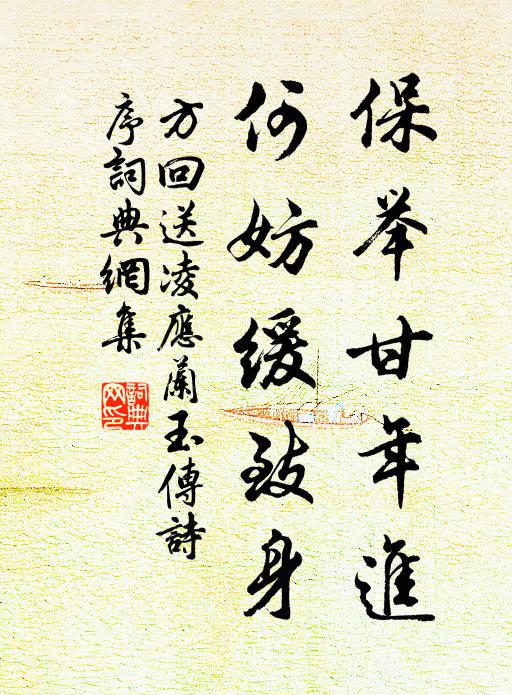 保举甘年進
何妨緩致身
方回送凌應蘭玉傳詩
序詞典網集
詞典
网印